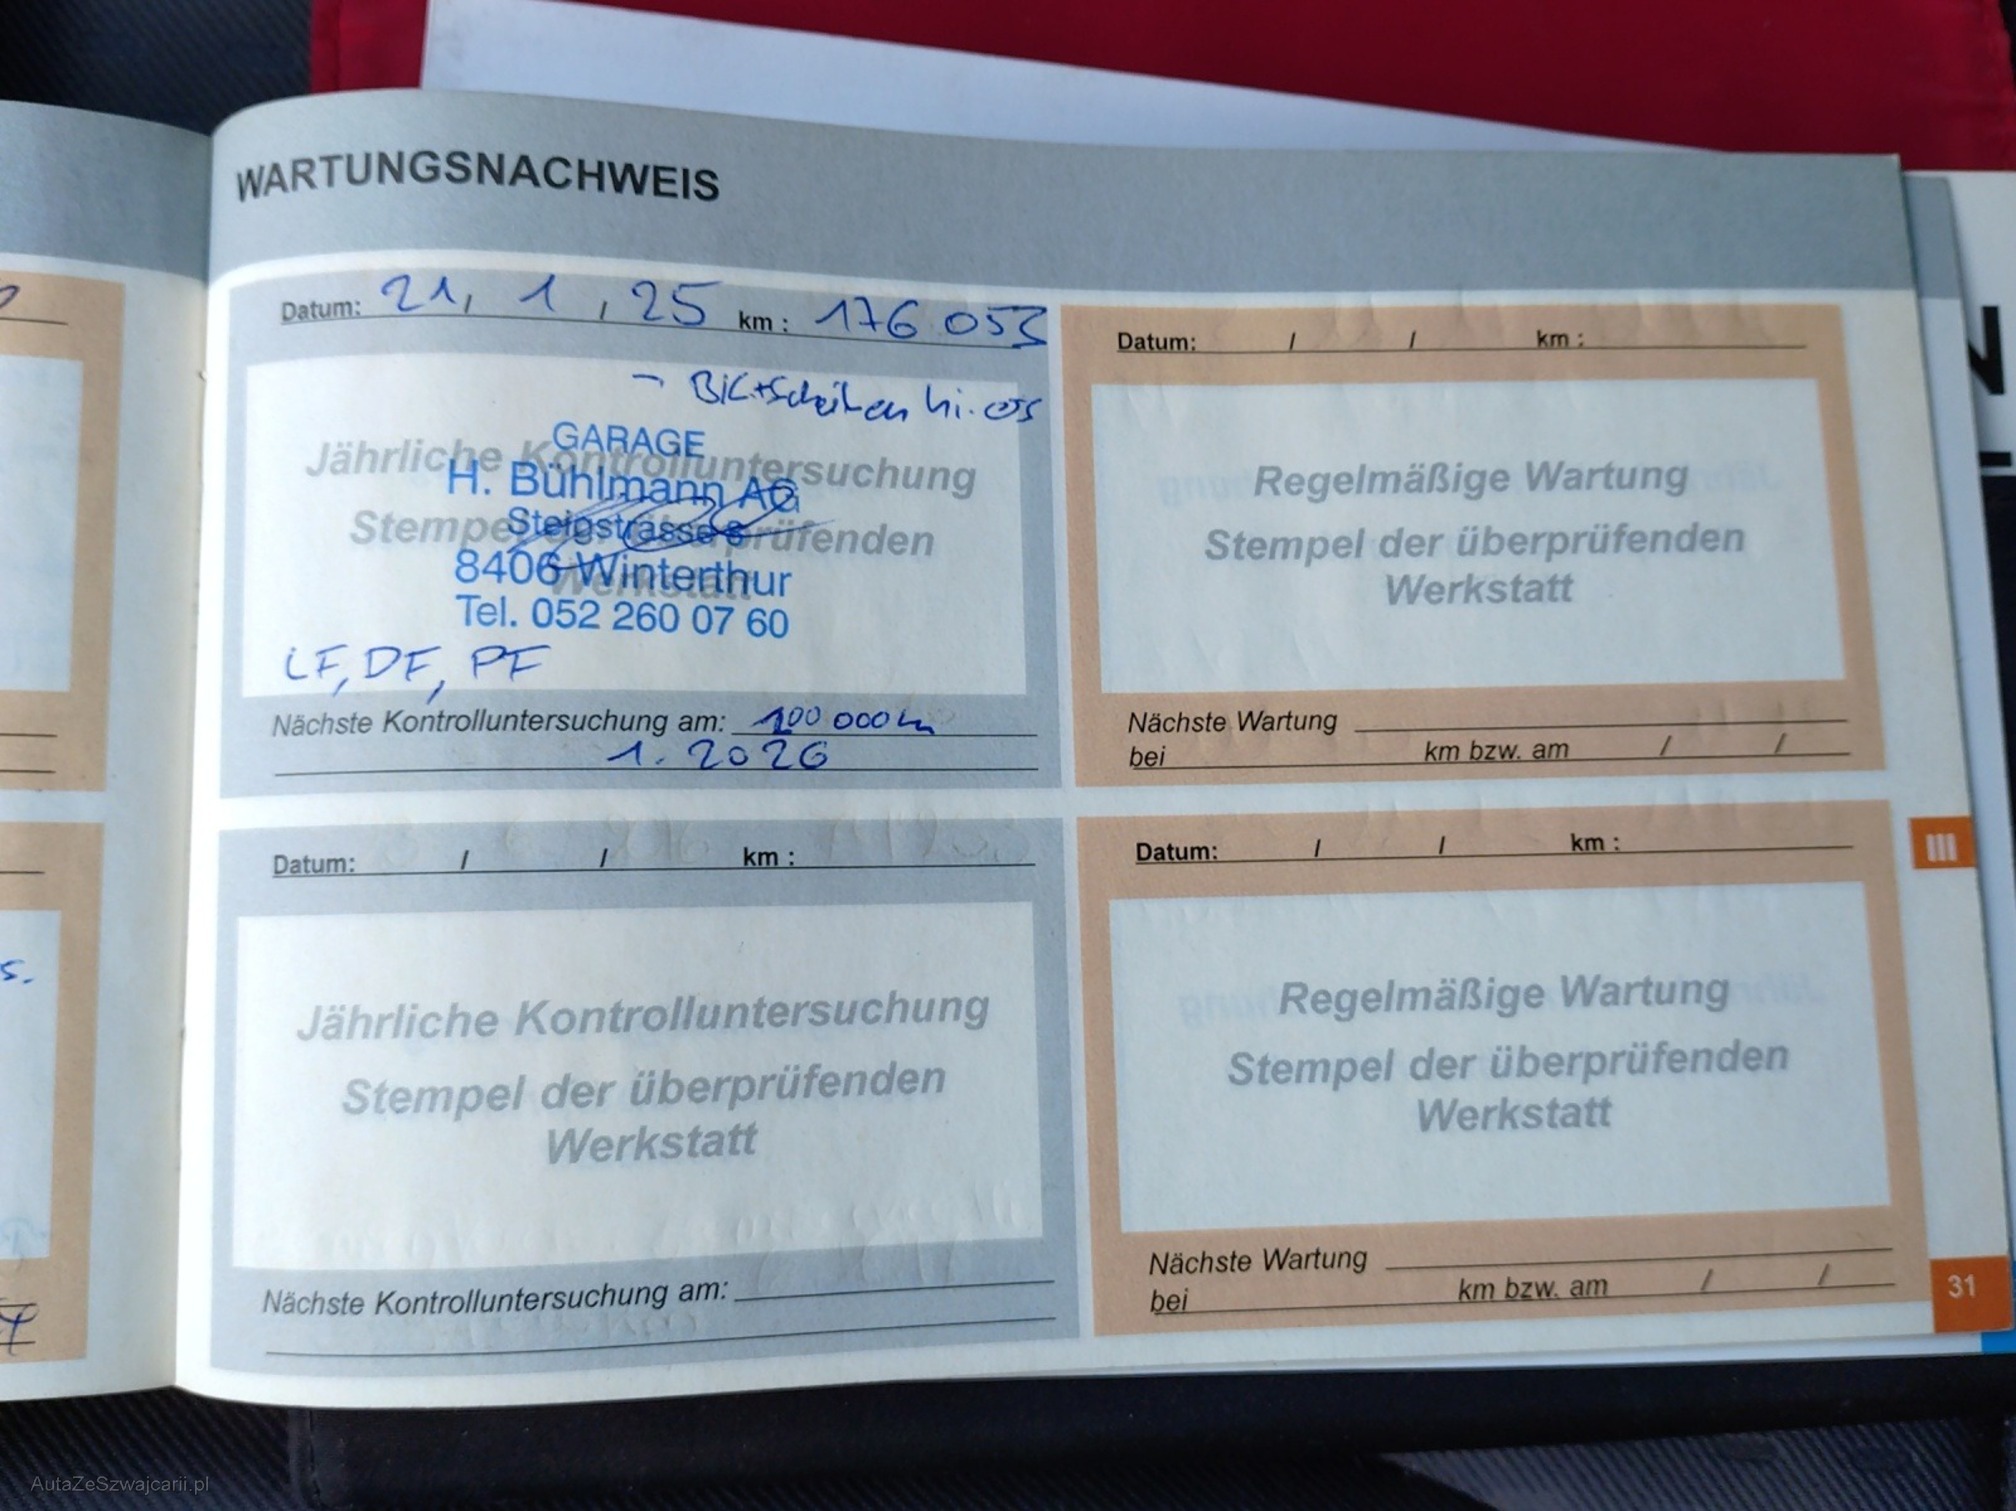 WARTUNGSNACHWEIS
Datum: 21, 1, 25 km: 176 053
- BK+Scheiben hi. ers
GARAGE
Jährliche Kontrolluntersuchung
H. Bühlmann AG
Stempel der überprüfenden
Steigstrasse 8
Werkstatt
8406 Winterthur
Tel. 052 260 07 60
LF, DF, PF
Nächste Kontrolluntersuchung am: 100 000 km
1. 2026
Datum: / / km :
Regelmäßige Wartung
Stempel der überprüfenden
Werkstatt
Nächste Wartung
bei km bzw. am / /
Datum: / / km :
Jährliche Kontrolluntersuchung
Stempel der überprüfenden
Werkstatt
Nächste Kontrolluntersuchung am:
Datum: / / km :
Regelmäßige Wartung
Stempel der überprüfenden
Werkstatt
Nächste Wartung
bei km bzw. am / /
III
31
s.
N
AutaZeSzwajcarii.pl